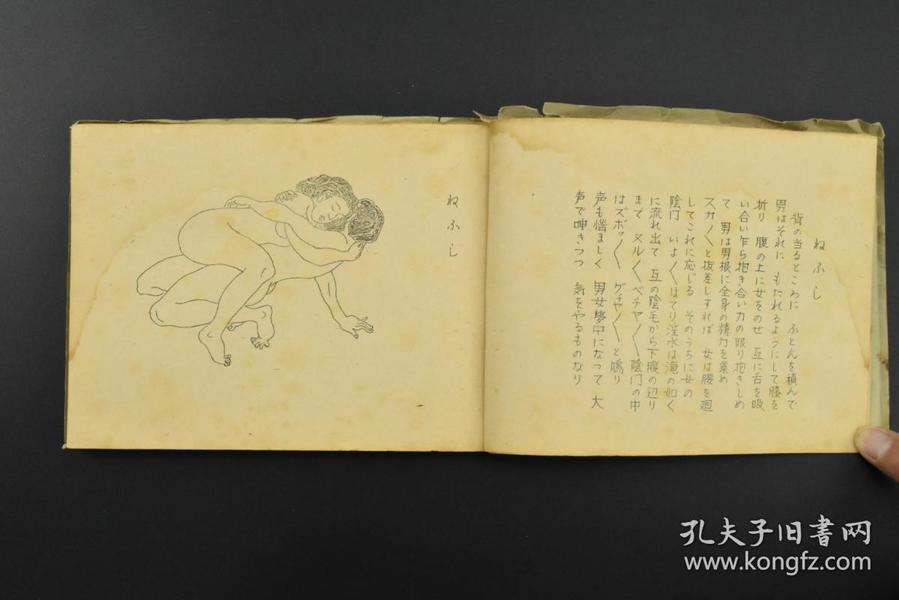 ねふし
ねふし
背の当るところに ふとんを積んで
男はそれに もたれるようにして膝を
折り 腹の上に女をのせ 互に舌を吸
い合い乍ら抱き合い力の限り抱きしめ
て 男は男根に全身の精力を集め
スカ〱と抜差しすれば 女は腰を廻
してこれに応じる そのうちに女の
陰門 いよ〱ほてり淫水は滝の如く
に流れ出て 互の陰毛から下腹の辺り
まで ヌル〱ベチヤ〱陰門の中
はズボッ〱 グチヤ〱と鳴り
声も悩ましく 男女夢中になって 大
声で呻きつつ 気をやるものなり
孔夫子旧书网
www.kongfz.com